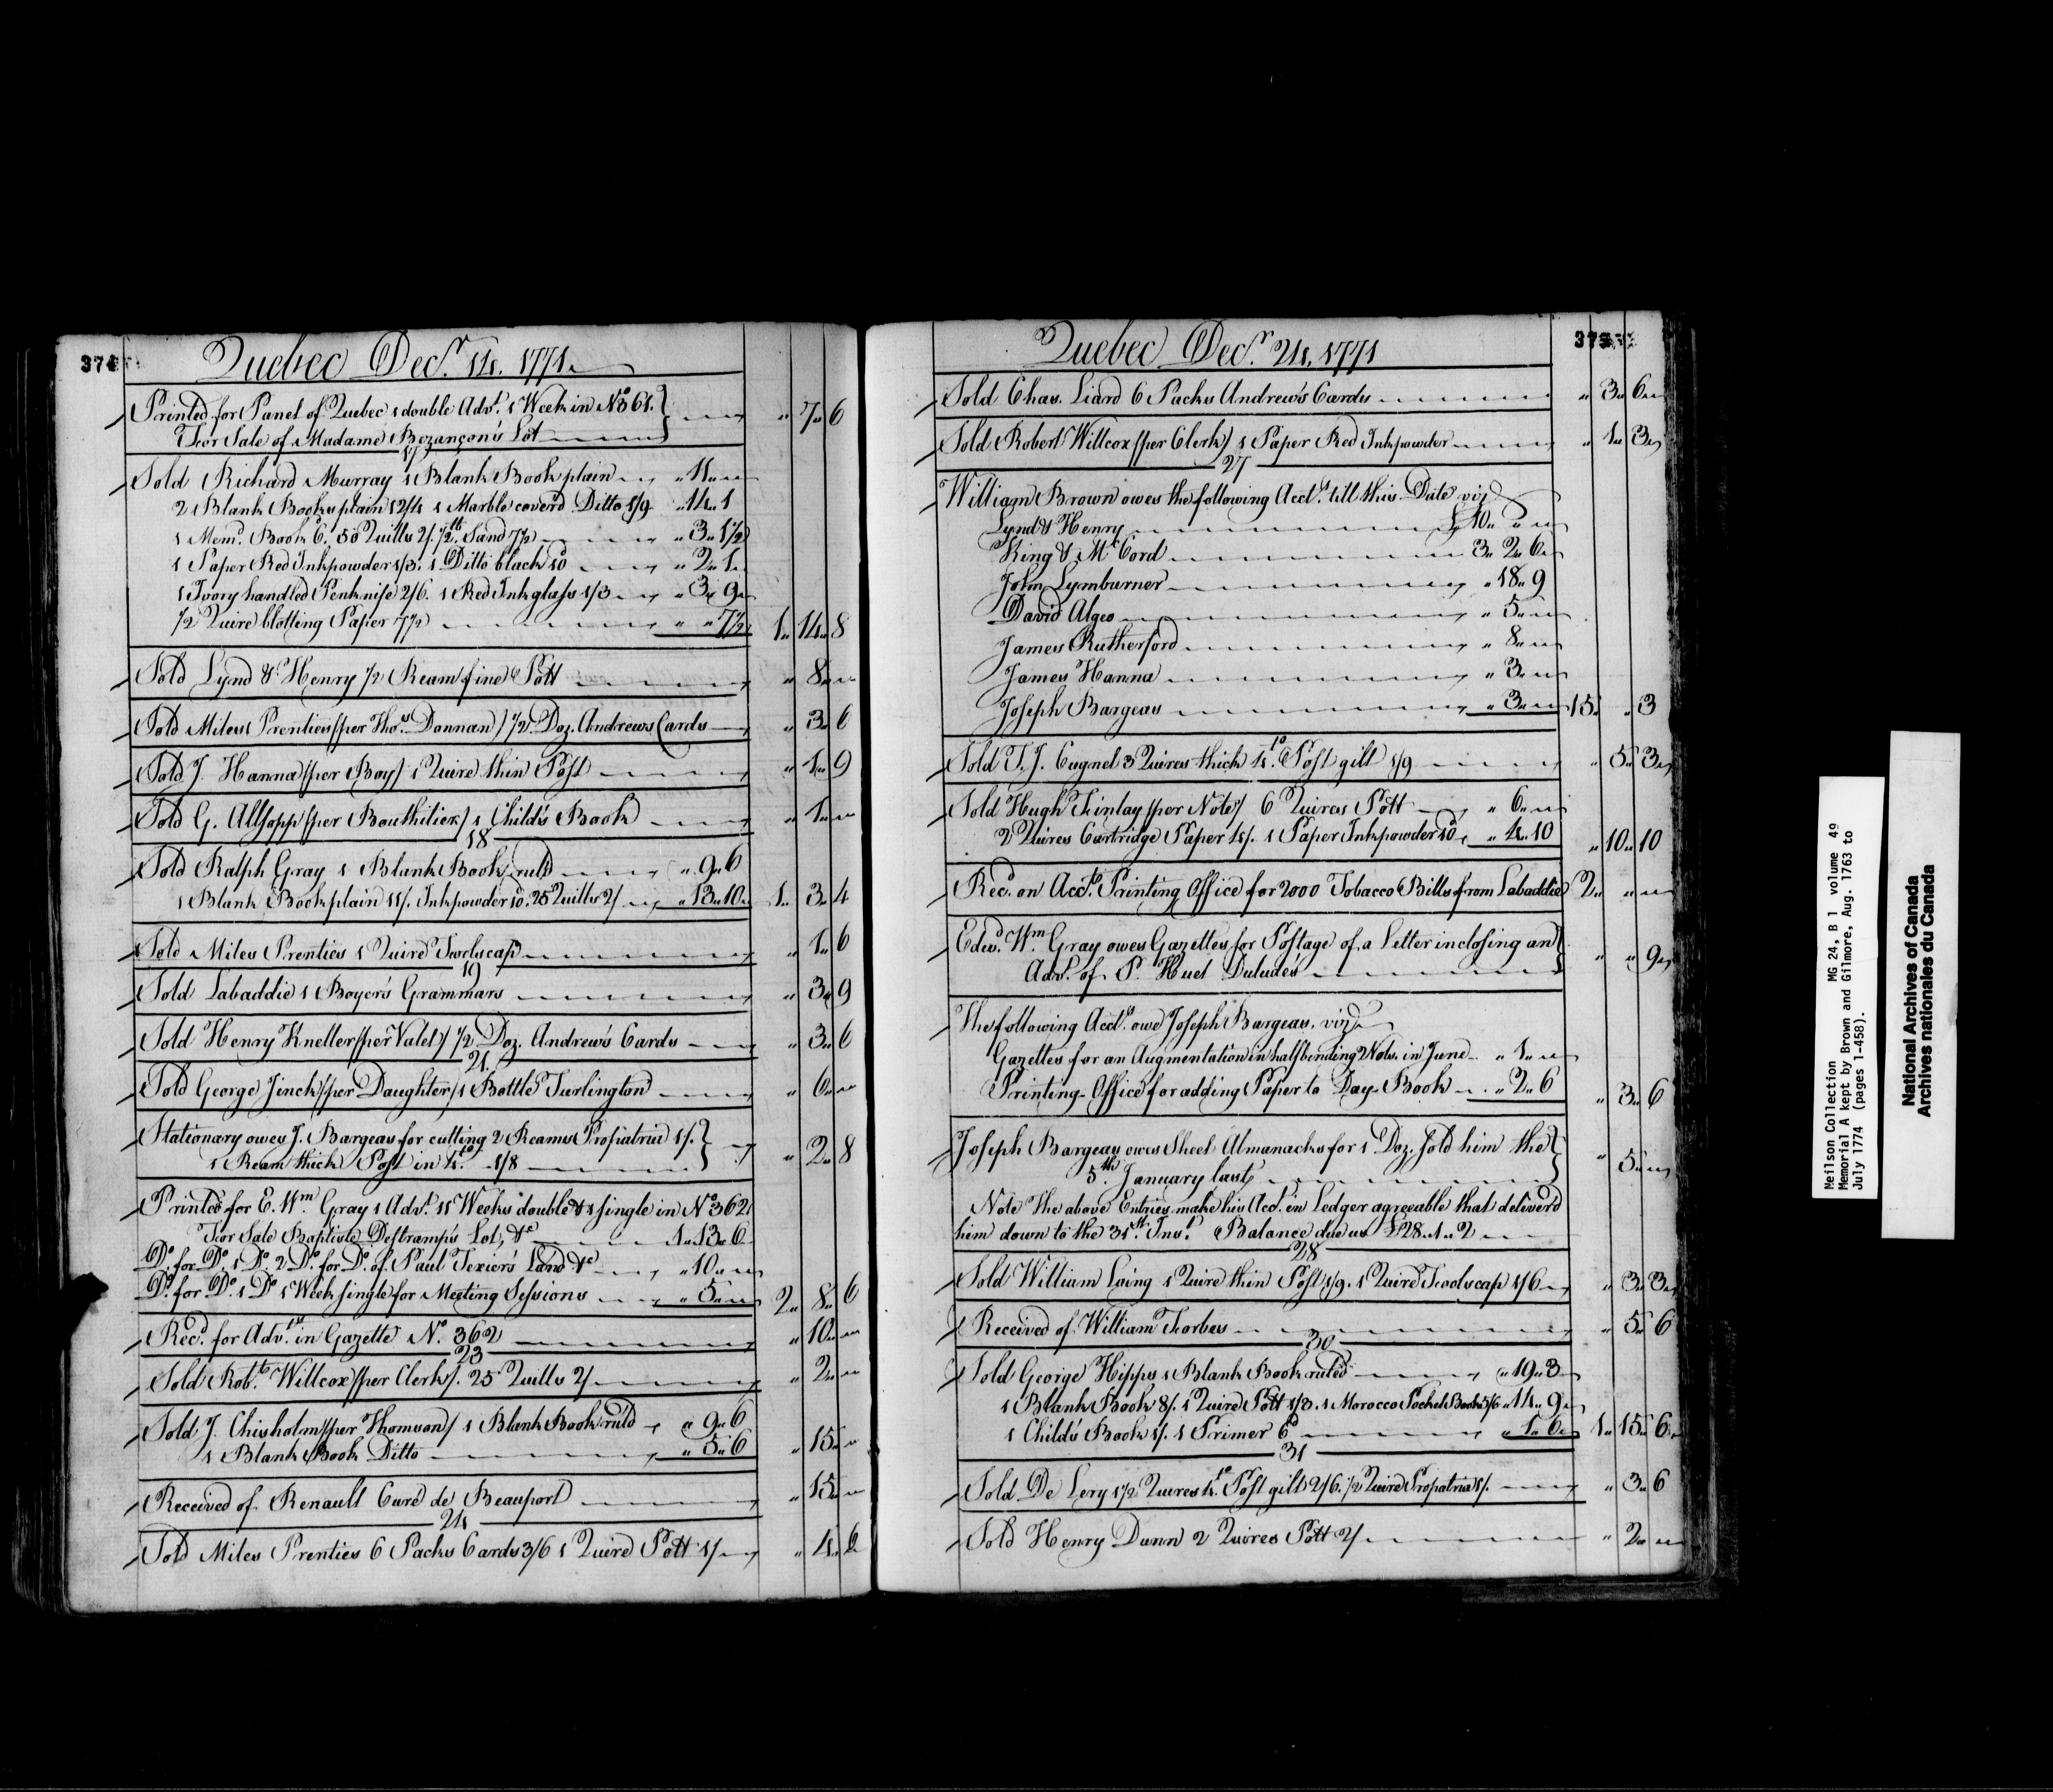 374
Quebec Decr. 14. 1771.
Printed for Panet of Quebec 1 double Advt. 1 Week in No. 361.
For Sale of Madame Bezançon's Lot " 7" 6
17
Sold Richard Murray 1 Blank Book plain " 11"
2 Blank Books plain 12/4 1 Marble coverd Ditto 1/9 " 14" 1
1 Mem. Book 6d. 50 Quills 2/. ½ lb. Sand 7½ " 3" 1½
1 Paper Red Inkpowder 1/3. 1 Ditto black 10 " 2" 1
1 Ivory handled Penknife 2/6. 1 Red Ink glass 1/3 " 3" 9
½ Quire blotting Paper 7½ " " 7½ 1" 14" 8
Sold Lynd & Henry ½ Ream fine Pott " 8"
Sold Miles Prenties /per Thos. Donnan/ ½ Doz. Andrews Cards " 3" 6
Sold J. Hanna /per Boy/ 1 Quire thin Post " 1" 9
Sold G. Allsopp /per Bouthilier/ 1 Child's Book " 1"
18
Sold Ralph Gray 1 Blank Book ruld " 9" 6
1 Blank Book plain 11/. Inkpowder 10. 25 Quills 2/ " 13" 10 1" 3" 4
Sold Miles Prenties 1 Quire Foolscap " 1" 6
19
Sold Labaddie 1 Boyer's Grammars " 3" 9
Sold Henry Kneller /per Valet/ ½ Doz. Andrew's Cards " 3" 6
21
Sold George Jinck /per Daughter/ 1 Bottle Turlington " 6"
Stationary owes J. Bargeas for cutting 2 Reams Propatria 1/.
1 Ream thick Post in 4to. 1/8 " 2" 8
Printed for E. Wm. Gray 1 Advt. 11 Weeks double & 1 single in No. 362
For Sale Baptiste Destramp's Lot, &c 1" 13" 6
Do. for Do. 1 Do. 2 Do. for Do. of Paul Texier's Land &c " 10"
Do. for Do. 1 Do. 1 Week single for Meeting Sessions " 5" 2" 8" 6
Recd. for Advts. in Gazette No. 362 " 10"
23
Sold Robt. Willcox /per Clerk/. 25 Quills 2/ " 2"
Sold J. Chisholm /per Thomson/ 1 Blank Book ruld " 9" 6
1 Blank Book Ditto " 5" 6 " 15"
Received of Renault Curé de Beauport " 15"
24
Sold Miles Prenties 6 Packs Cards 3/6 1 Quire Pott 1/ " 4" 6
375
Quebec Decr. 24. 1771
Sold Chas. Liard 6 Packs Andrew's Cards " 3" 6
Sold Robert Willcox /per Clerk/ 1 Paper Red Inkpowder " 1" 3
27
William Brown owes the following Accts. till this Date viz
Lynd & Henry £10" "
King & McCord 3" 2" 6
John Lymburner " 18" 9
David Algeo " 5"
James Rutherford " 8"
James Hanna " 3"
Joseph Bargeas " 3" 15" " 3
Sold F. J. Cugnet 3 Quires thick 4to. Post gilt 1/9 " 5" 3
Sold Hugh Finlay /per Note/ 6 Quires Pott " 6"
2 Quires Cartridge Paper 4/. 1 Paper Inkpowder 10 " 4" 10 " 10" 10
Recd. on Acct. Printing Office for 2000 Tobacco Bills from Labaddie 2" "
Edwd. Wm. Gray owes Gazettes for Postage of a Letter inclosing an
Advt. of P. Huet Dulude's " " 9
The following Accts. owe Joseph Bargeas, viz
Gazettes for an Augmentation in halfbinding 2 Vols. in June " 1"
Printing-Office for adding Paper to Day-Book " 2" 6 " 3" 6
Joseph Bargeas owes Sheet Almanacks for 1 Doz. sold him the
5th. January last " 5"
Note The above Entries make his Acct. in Ledger agreeable that deliverd
him down to the 31st. Inst. Balance due us £28" 1" 2
28
Sold William Laing 1 Quire thin Post 1/9. 1 Quire Foolscap 1/6 " 3" 3
Received of William Forbes " 5" 6
30
Sold George Hipps 1 Blank Book ruled " 19" 3
1 Blank Book 8/. 1 Quire Pott 1/3. 1 Morocco Pocket Book 5/6 " 14" 9
1 Child's Book 1/. 1 Primer 6d " 1" 6 1" 15" 6
31
Sold De Lery 1½ Quires 4to. Post gilt 2/6. ½ Quire Propatria 1/. " 3" 6
Sold Henry Dunn 2 Quires Pott 2/ " 2"
Neilson Collection MG 24, B 1 volume 49
Memorial A kept by Brown and Gilmore, Aug. 1763 to
July 1774 (pages 1-458).
National Archives of Canada
Archives nationales du Canada